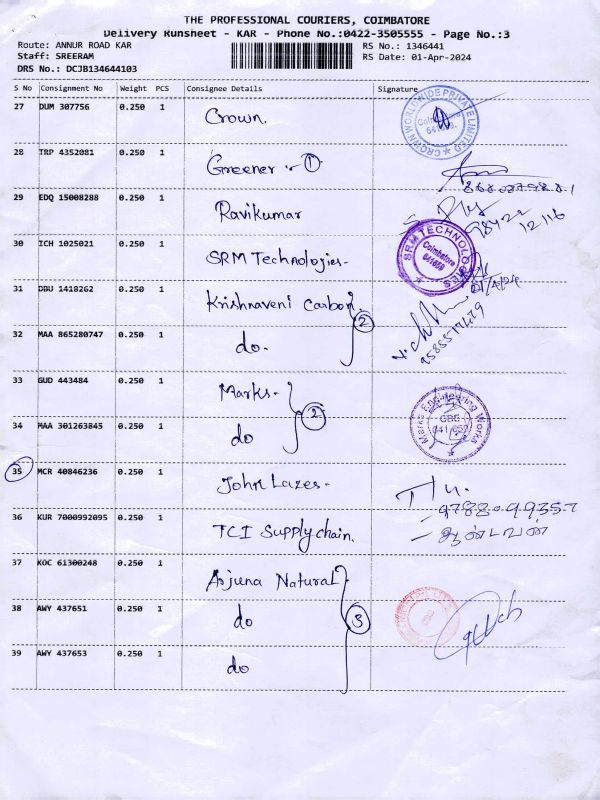 THE PROFESSIONAL COURIERS, COIMBATORE
Delivery Runsheet - KAR - Phone No.:0422-3505555 - Page No.:3
Route: ANNUR ROAD KAR
Staff: SREERAM
DRS No.: DCJB134644103
RS No.: 1346441
RS Date: 01-Apr-2024
S No Consignment No Weight PCS Consignee Details Signature
27 DUM 307756 0.250 1 Crown.
CROWN WORLDWIDE PRIVATE LIMITED
Coimbatore
28 TRP 4352081 0.250 1 Greener - 1
29 EDQ 15008288 0.250 1 Ravikumar
98422
12116
30 ICH 1025021 0.250 1 SRM Technologies-
SRM TECHNOLOGIES
Coimbatore
641659
31 DBU 1418262 0.250 1 Krishnaveni Carbon 2
32 MAA 865280747 0.250 1 do.
33 GUD 443484 0.250 1 Marks- 2
Marks Engineering Works
34 MAA 301263845 0.250 1 do
35 MCR 40846236 0.250 1 John Lazes-
36 KUR 7000992095 0.250 1 TCI Supply chain.
97880 99357
ஆண்டவன்
37 KOC 61300248 0.250 1 Arjuna Natural
38 AWY 437651 0.250 1 do 3
39 AWY 437653 0.250 1 do